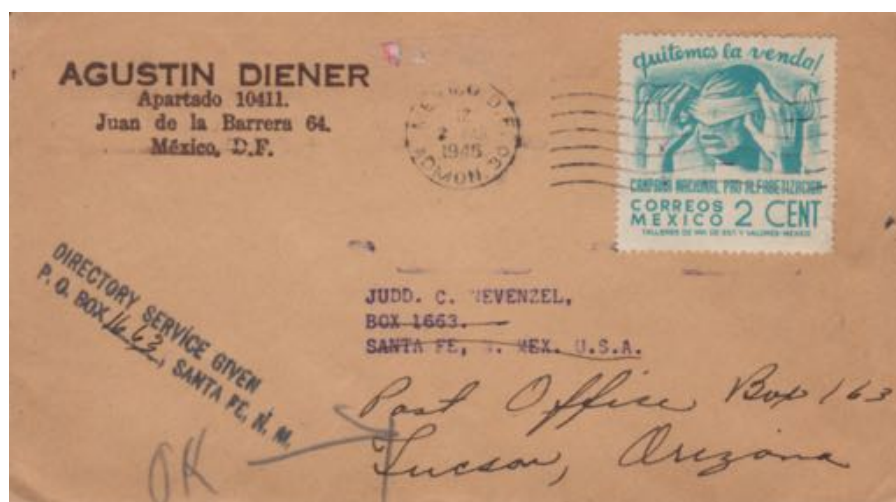 AGUSTIN DIENER
Apartado 10411.
Juan de la Barrera 64.
México, D.F.
MEXICO D.F.
1945
ADMON. 30
quitemos la venda!
CAMPAÑA NACIONAL PRO ALFABETIZACION
CORREOS
MEXICO 2 CENT
TALLERES DE IMP. DE EST. Y VALORES-MEXICO
DIRECTORY SERVICE GIVEN
P. O. BOX 1663, SANTA FE, N. M.
JUDD. C.
BOX 1663.
SANTA FE, MEX. U.S.A.
Post Office Box 163
Tucson, Arizona
OK